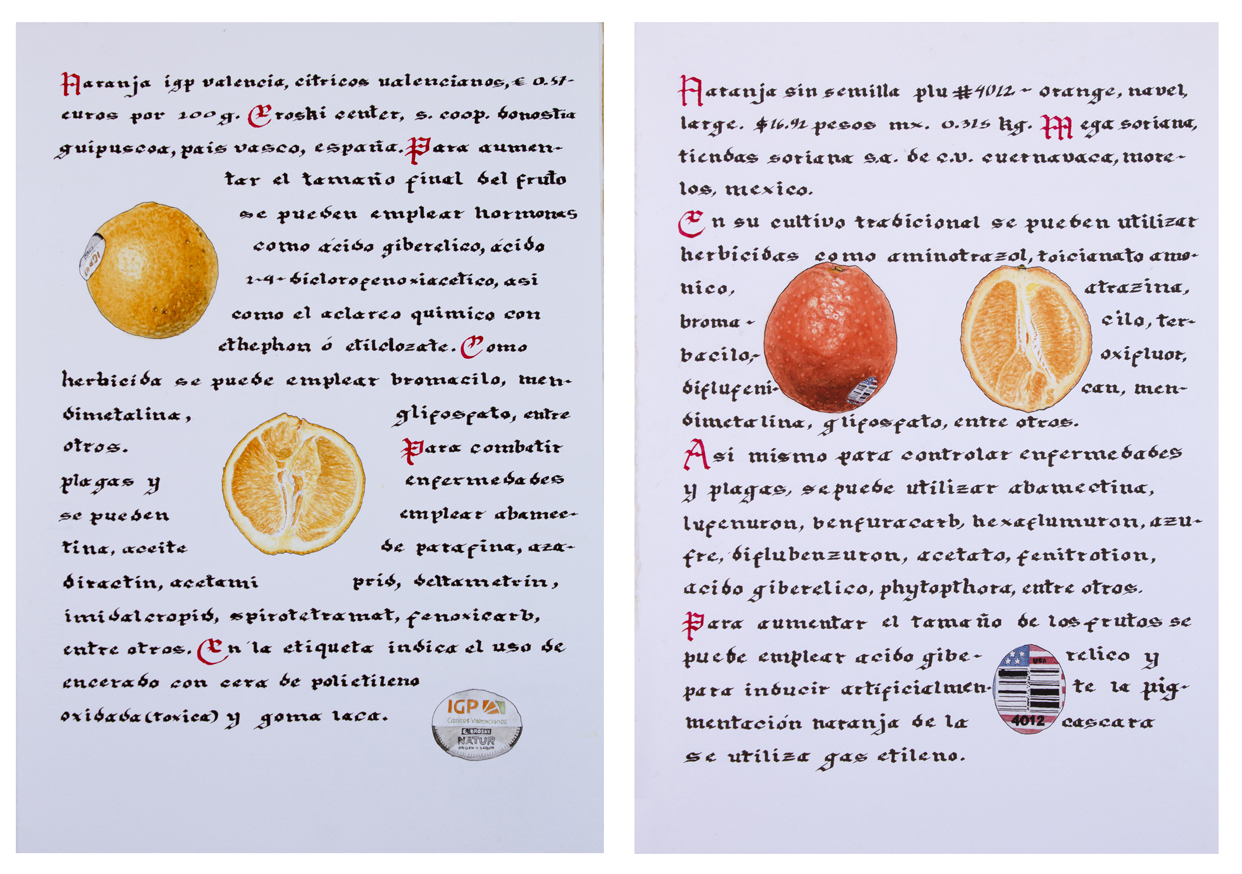 Naranja igp valencia, citricos valencianos, € 0.51-
euros por 100g. Eroski center, s. coop. donostia
guipuscoa, pais vasco, españa. Para aumen-
tar el tamaño final del fruto
se pueden emplear hormonas
como acido giberelico, acido
2-4- diclorofenoxiacetico, asi
como el aclareo quimico con
ethephon ó etilclozate. Como
herbicida se puede emplear bromacilo, men-
dimetalina, glifosfato, entre
otros. Para combatir
plagas y enfermedades
se pueden emplear abamec-
tina, aceite de parafina, aza-
diractin, acetami prid, deltametrin,
imidalcropid, spirotetramat, fenoxicarb,
entre otros. En la etiqueta indica el uso de
encerado con cera de polietileno
oxidada (toxica) y goma laca.
IGP
Cítricos Valencianos
EROSKI
NATUR
Naranja sin semilla plu #4012 - orange, navel,
large. $16.92 pesos mx. 0.315 kg. Mega soriana,
tiendas soriana s.a. de c.v. cuernavaca, more-
los, mexico.
En su cultivo tradicional se pueden utilizar
herbicidas como aminotrazol, toicianato amo-
nico, atrazina,
broma- cilo, ter-
bacilo, oxifluor,
diflufeni- can, men-
dimetalina, glifosfato, entre otros.
Asi mismo para controlar enfermedades
y plagas, se puede utilizar abamectina,
lufenuron, benfuracarb, hexaflumuron, azu-
fre, diflubenzuron, acetato, fenitrotion,
acido giberelico, phytopthora, entre otros.
Para aumentar el tamaño de los frutos se
puede emplear acido gibe- relico y
para inducir artificialmen- te la pig-
mentación naranja de la cascara
se utiliza gas etileno.
USA
4012